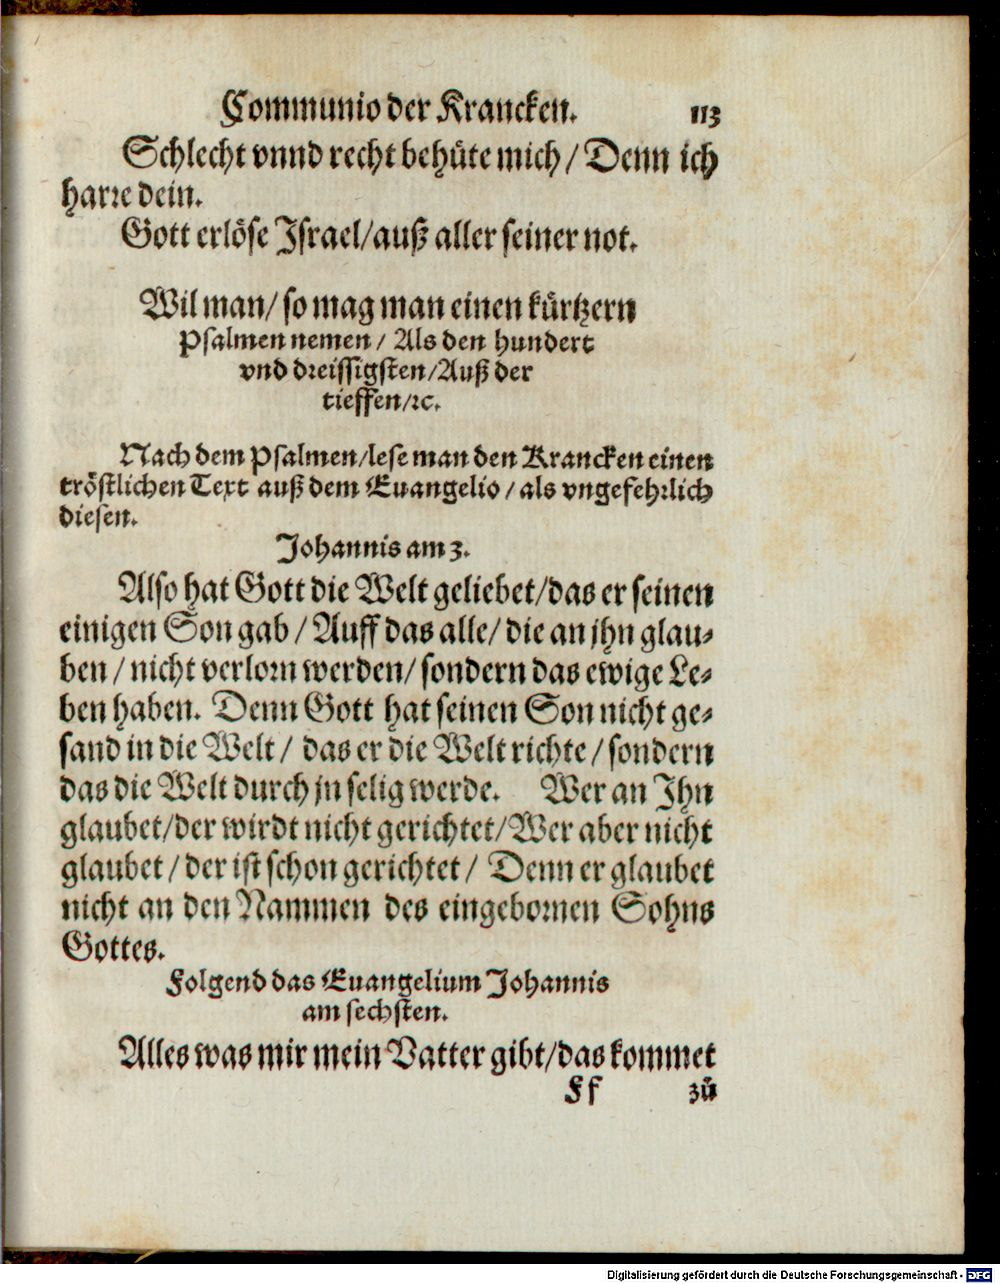 Communio der Krancken. 113
Schlecht vnnd recht behüte mich / Denn ich
harre dein.
Gott erlöse Israel/auß aller seiner not.
Wil man/ so mag man einen kürtzern
Psalmen nemen / Als den hundert
vnd dreissigsten/Auß der
tieffen/ꝛc.
Nach dem Psalmen/lese man den Krancken einen
tröstlichen Text auß dem Euangelio / als vngefehrlich
diesen.
Johannis am 3.
Also hat Gott die Welt geliebet/das er seinen
einigen Son gab / Auff das alle/ die an jhn glau⸗
ben / nicht verlorn werden/ sondern das ewige Le⸗
ben haben. Denn Gott hat seinen Son nicht ge⸗
sand in die Welt / das er die Welt richte / sondern
das die Welt durch jn selig werde. Wer an Ihn
glaubet/der wirdt nicht gerichtet/Wer aber nicht
glaubet / der ist schon gerichtet / Denn er glaubet
nicht an den Nammen des eingebornen Sohns
Gottes.
Folgend das Euangelium Johannis
am sechsten.
Alles was mir mein Vatter gibt/das kommet
Ff zů
Digitalisierung gefördert durch die Deutsche Forschungsgemeinschaft - DFG